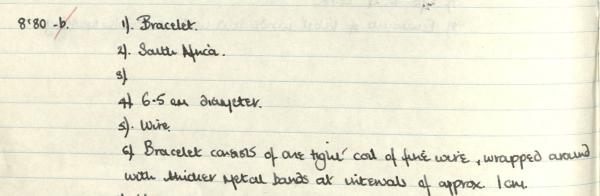 8'80 -b. 1). Bracelet.
2). South Africa.
3)
4) 6.5 cm diameter.
5). Wire.
6) Bracelet consists of one tight coil of fine wire, wrapped around
with thicker metal bands at intervals of approx 1cm.